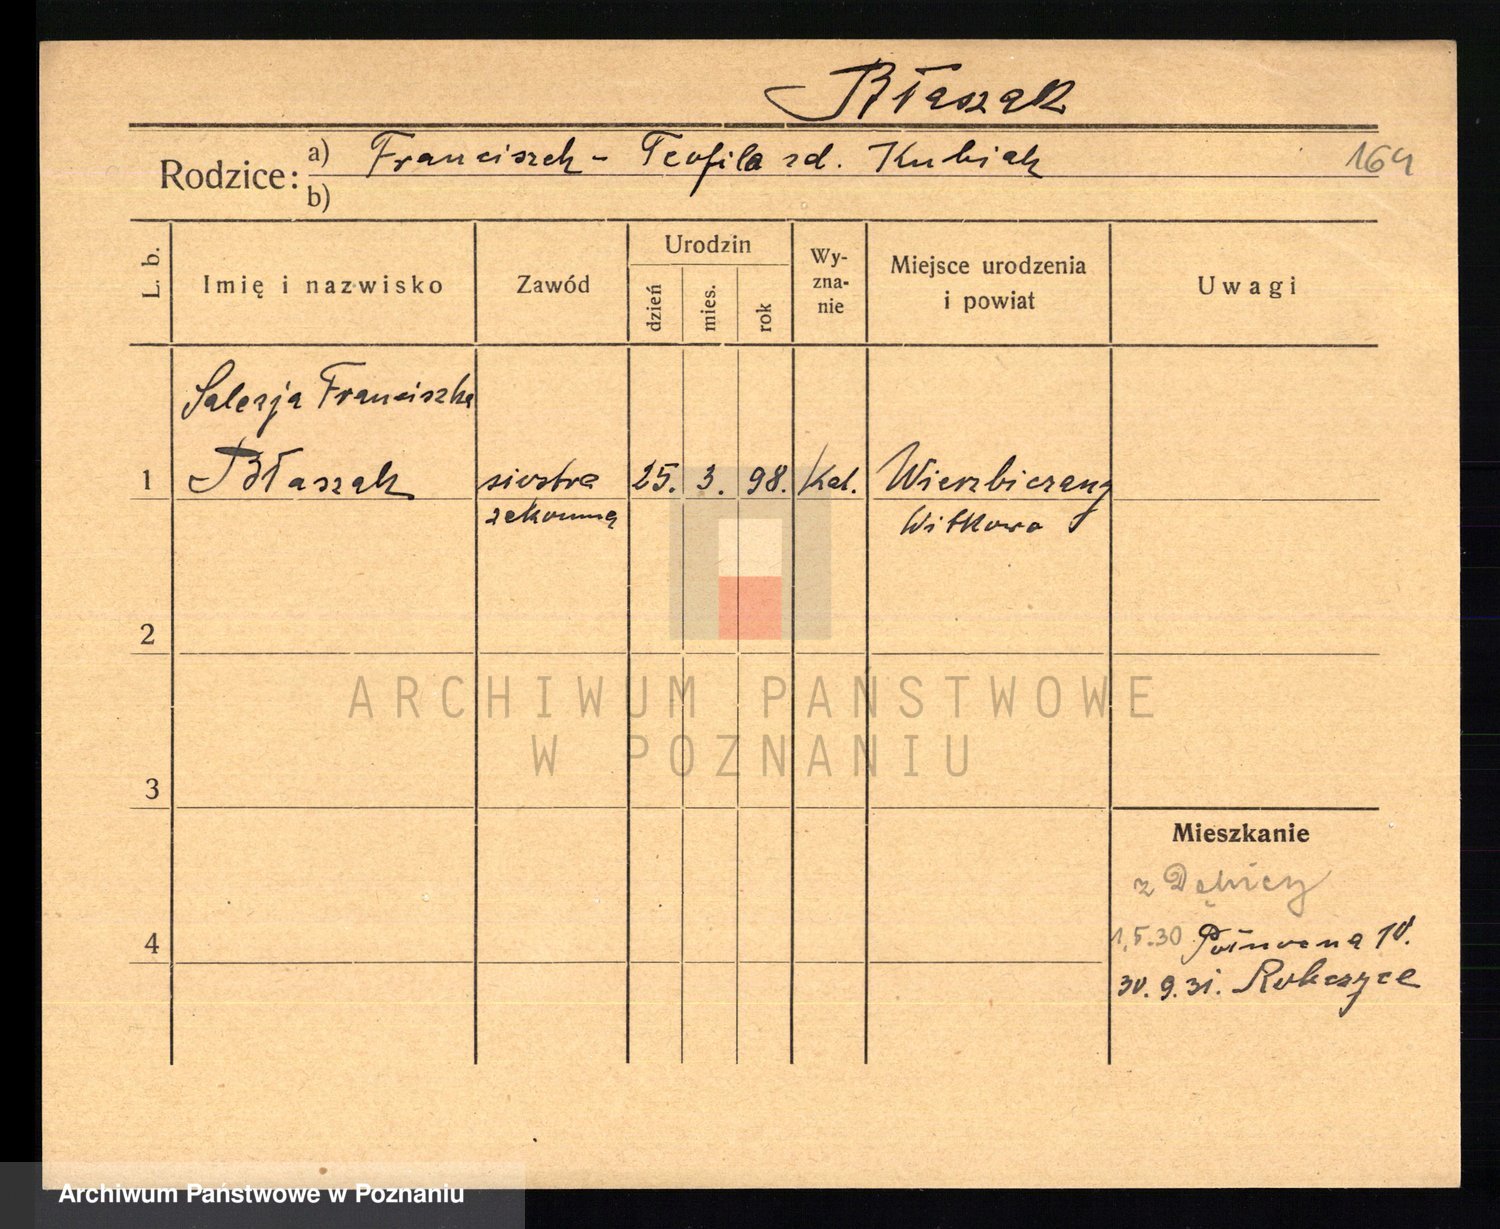 Błaszak
Rodzice: a) Franciszek - Teofila zd. Kubiak 164
b)
L. b. Imię i nazwisko Zawód Urodzin dzień mies. rok Wy-zna-nie Miejsce urodzenia i powiat Uwagi
Salezja Franciszka
1 Błaszak siostra 25. 3. 98. Kat. Wierzbiczany
zakonna Witkowo
2
ARCHIWUM PANSTWOWE
W POZNANIU
3
Mieszkanie
z Dębicy
4 1.5.30 10.
30.9.31.
Archiwum Państwowe w Poznaniu